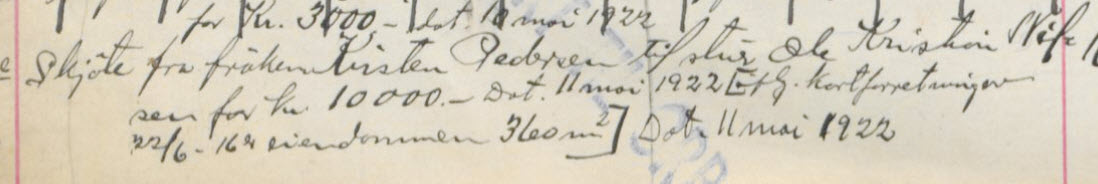 for Kr. 3000,- dat. 10 mai 1922
Skjöte fra fröken Kirsten Pedersen til stur. Ole Kristian Nil
sen for kr. 10000.- Dat. 11 mai 1922 [ kartforretninger
22/6-16 er eiendommen 360 m²] Dat. 11 mai 1922